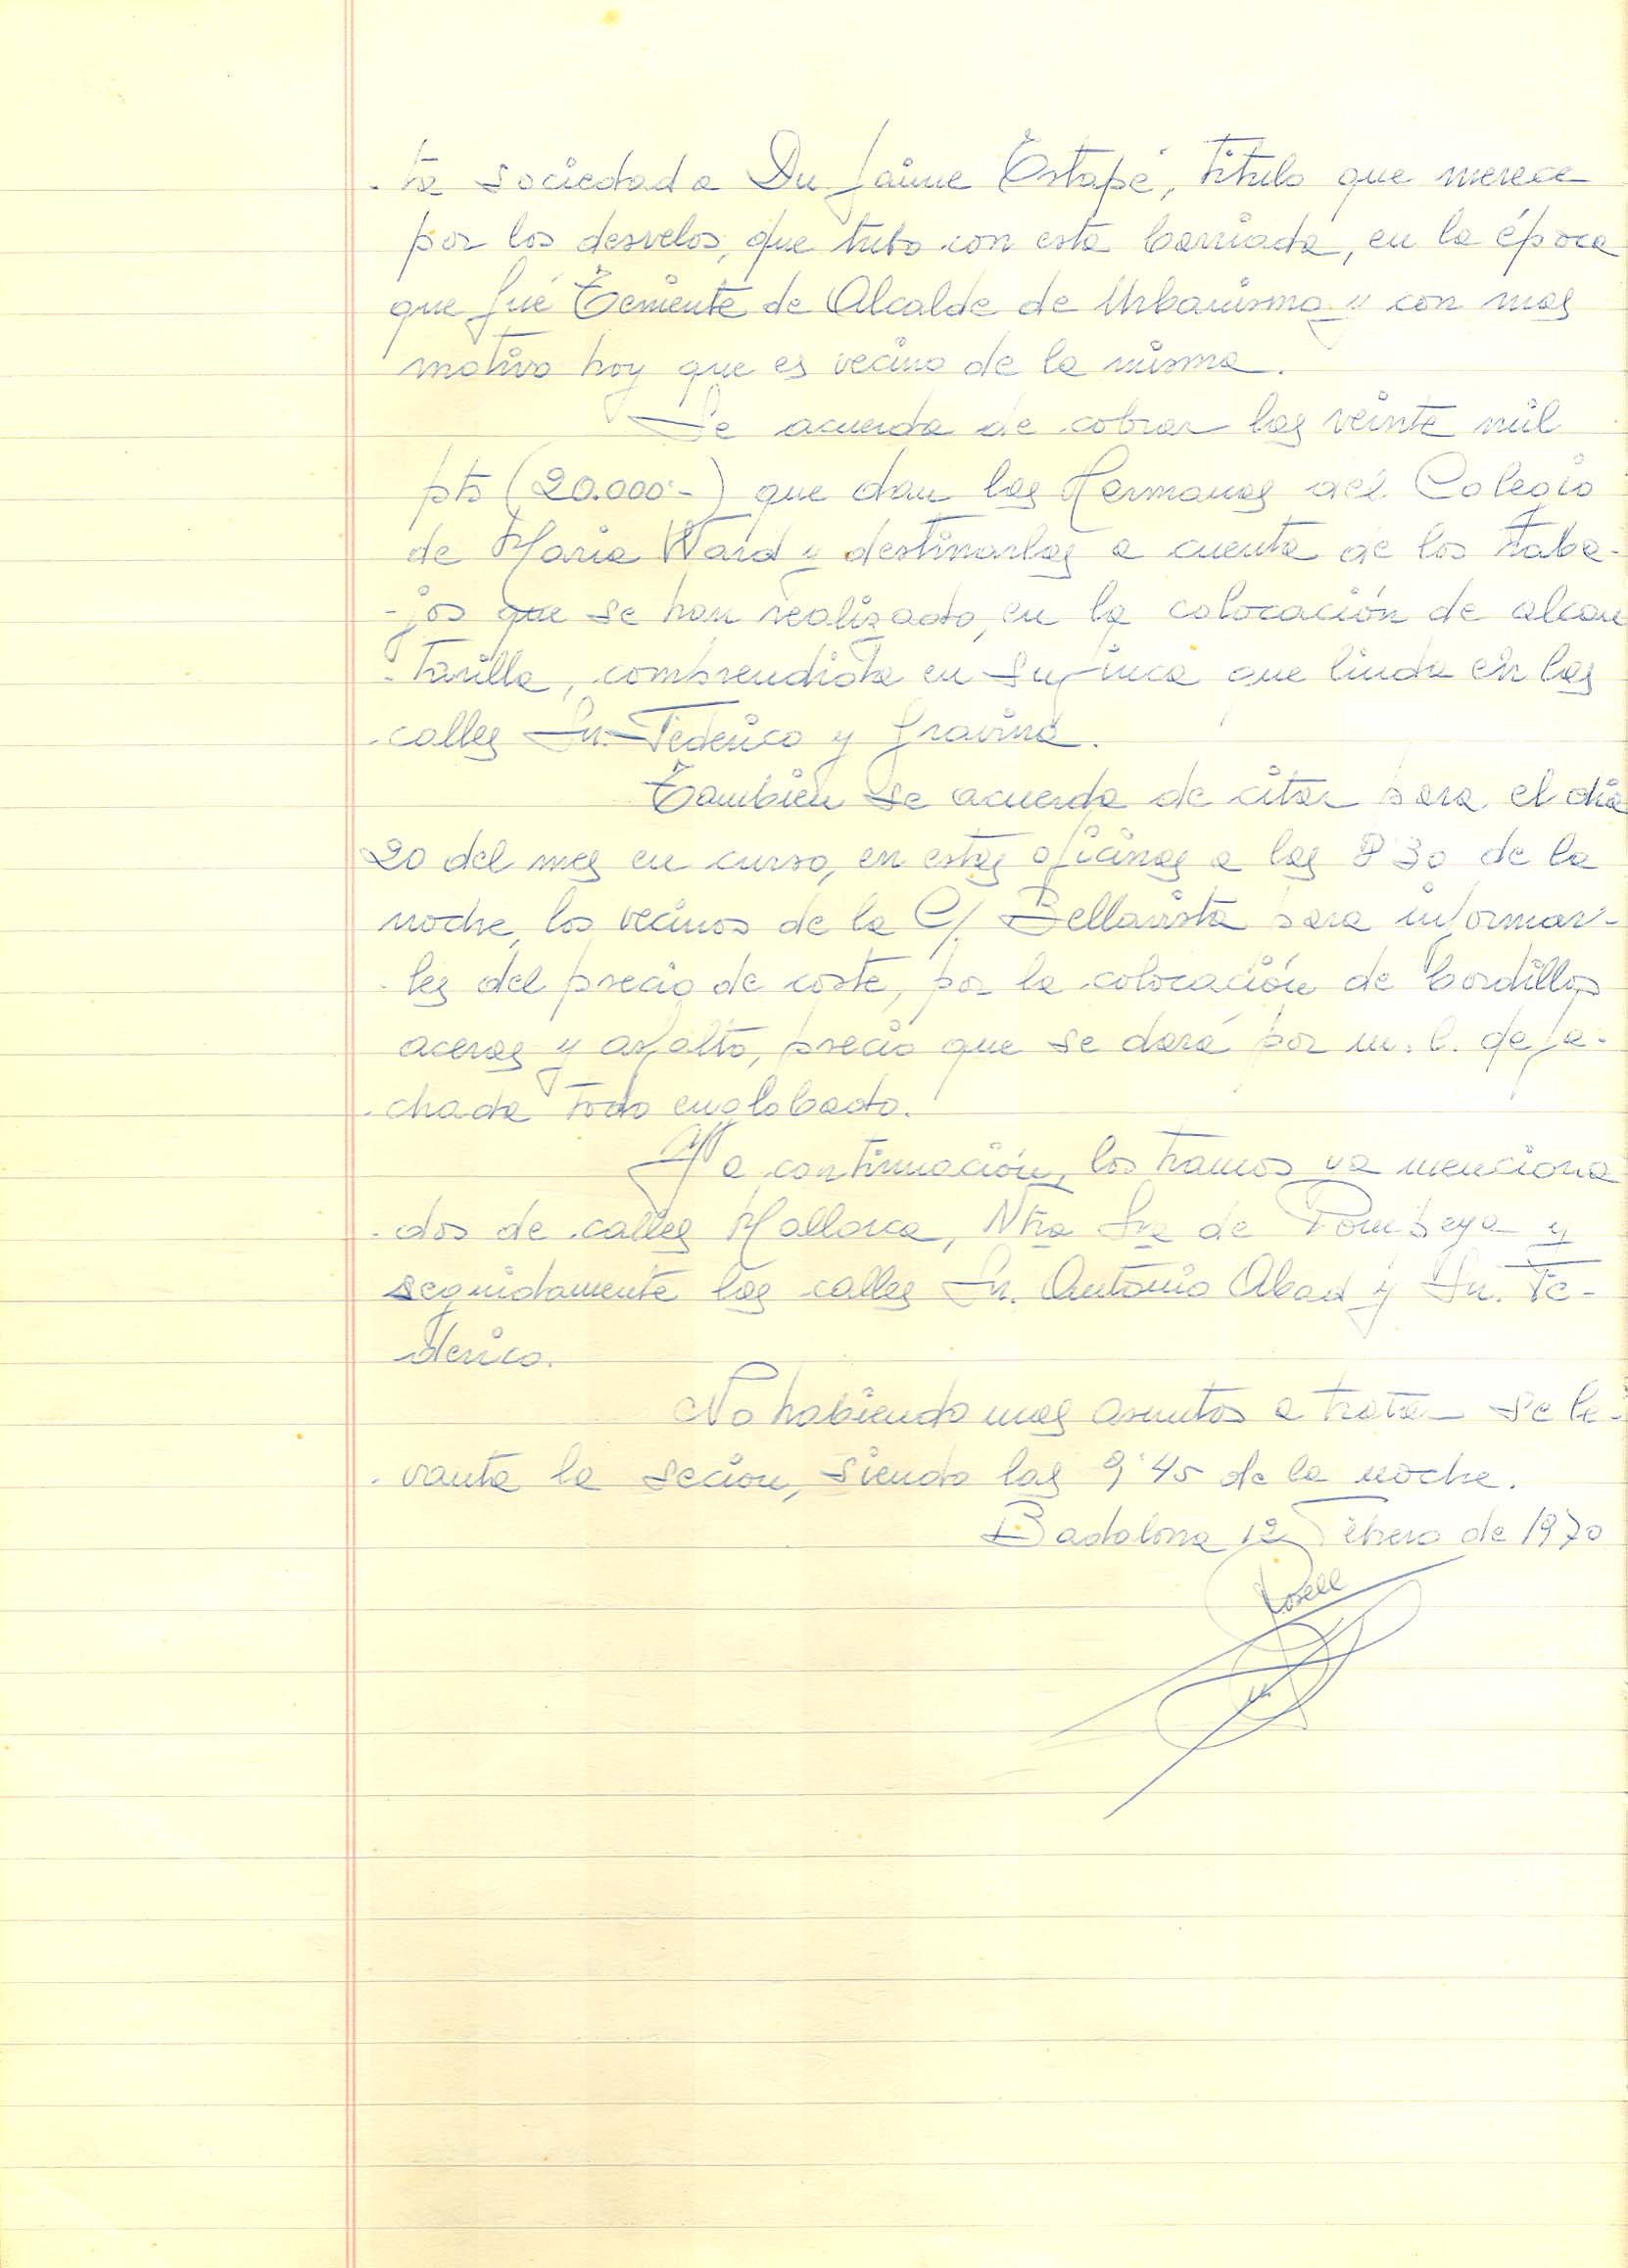 -ta sociedad a Dn Jaime Estapé, título que merece
por los desvelos, que tubo con esta barriada, en la época
que fué Teniente de Alcalde de Urbanismo y con mas
motivo hoy que es vecino de la misma.
Se acuerda de cobrar las veinte mil
pts (20.000'-) que dan las Hermanas del Colegio
de Maria Ward y destinarlas a cuenta de los traba-
-jos que se han realizado, en la colocación de alcan
-tarilla, comprendida en su finca que linda en las
calles Sn. Federico y Gravina.
También se acuerda de citar para el dia
20 del mes en curso, en estas oficinas a las 8'30 de la
noche, los vecinos de la C/ Bellavista para informar-
les del precio de coste, por la colocación de bordillos
aceras y asfalto, precio que se dará por m. l. de fa-
chada todo englobado.
Y a continuación, los tramos ya menciona
dos de calles Mallorca, Ntra Sra de Pompeya y
seguidamente las calles Sn. Antonio Abad y Sn. Fe-
derico.
No habiendo mas asuntos a tratar se le-
vanta la secion, siendo las 9'45 de la noche.
Badalona 12 Febrero de 1970
Rosell